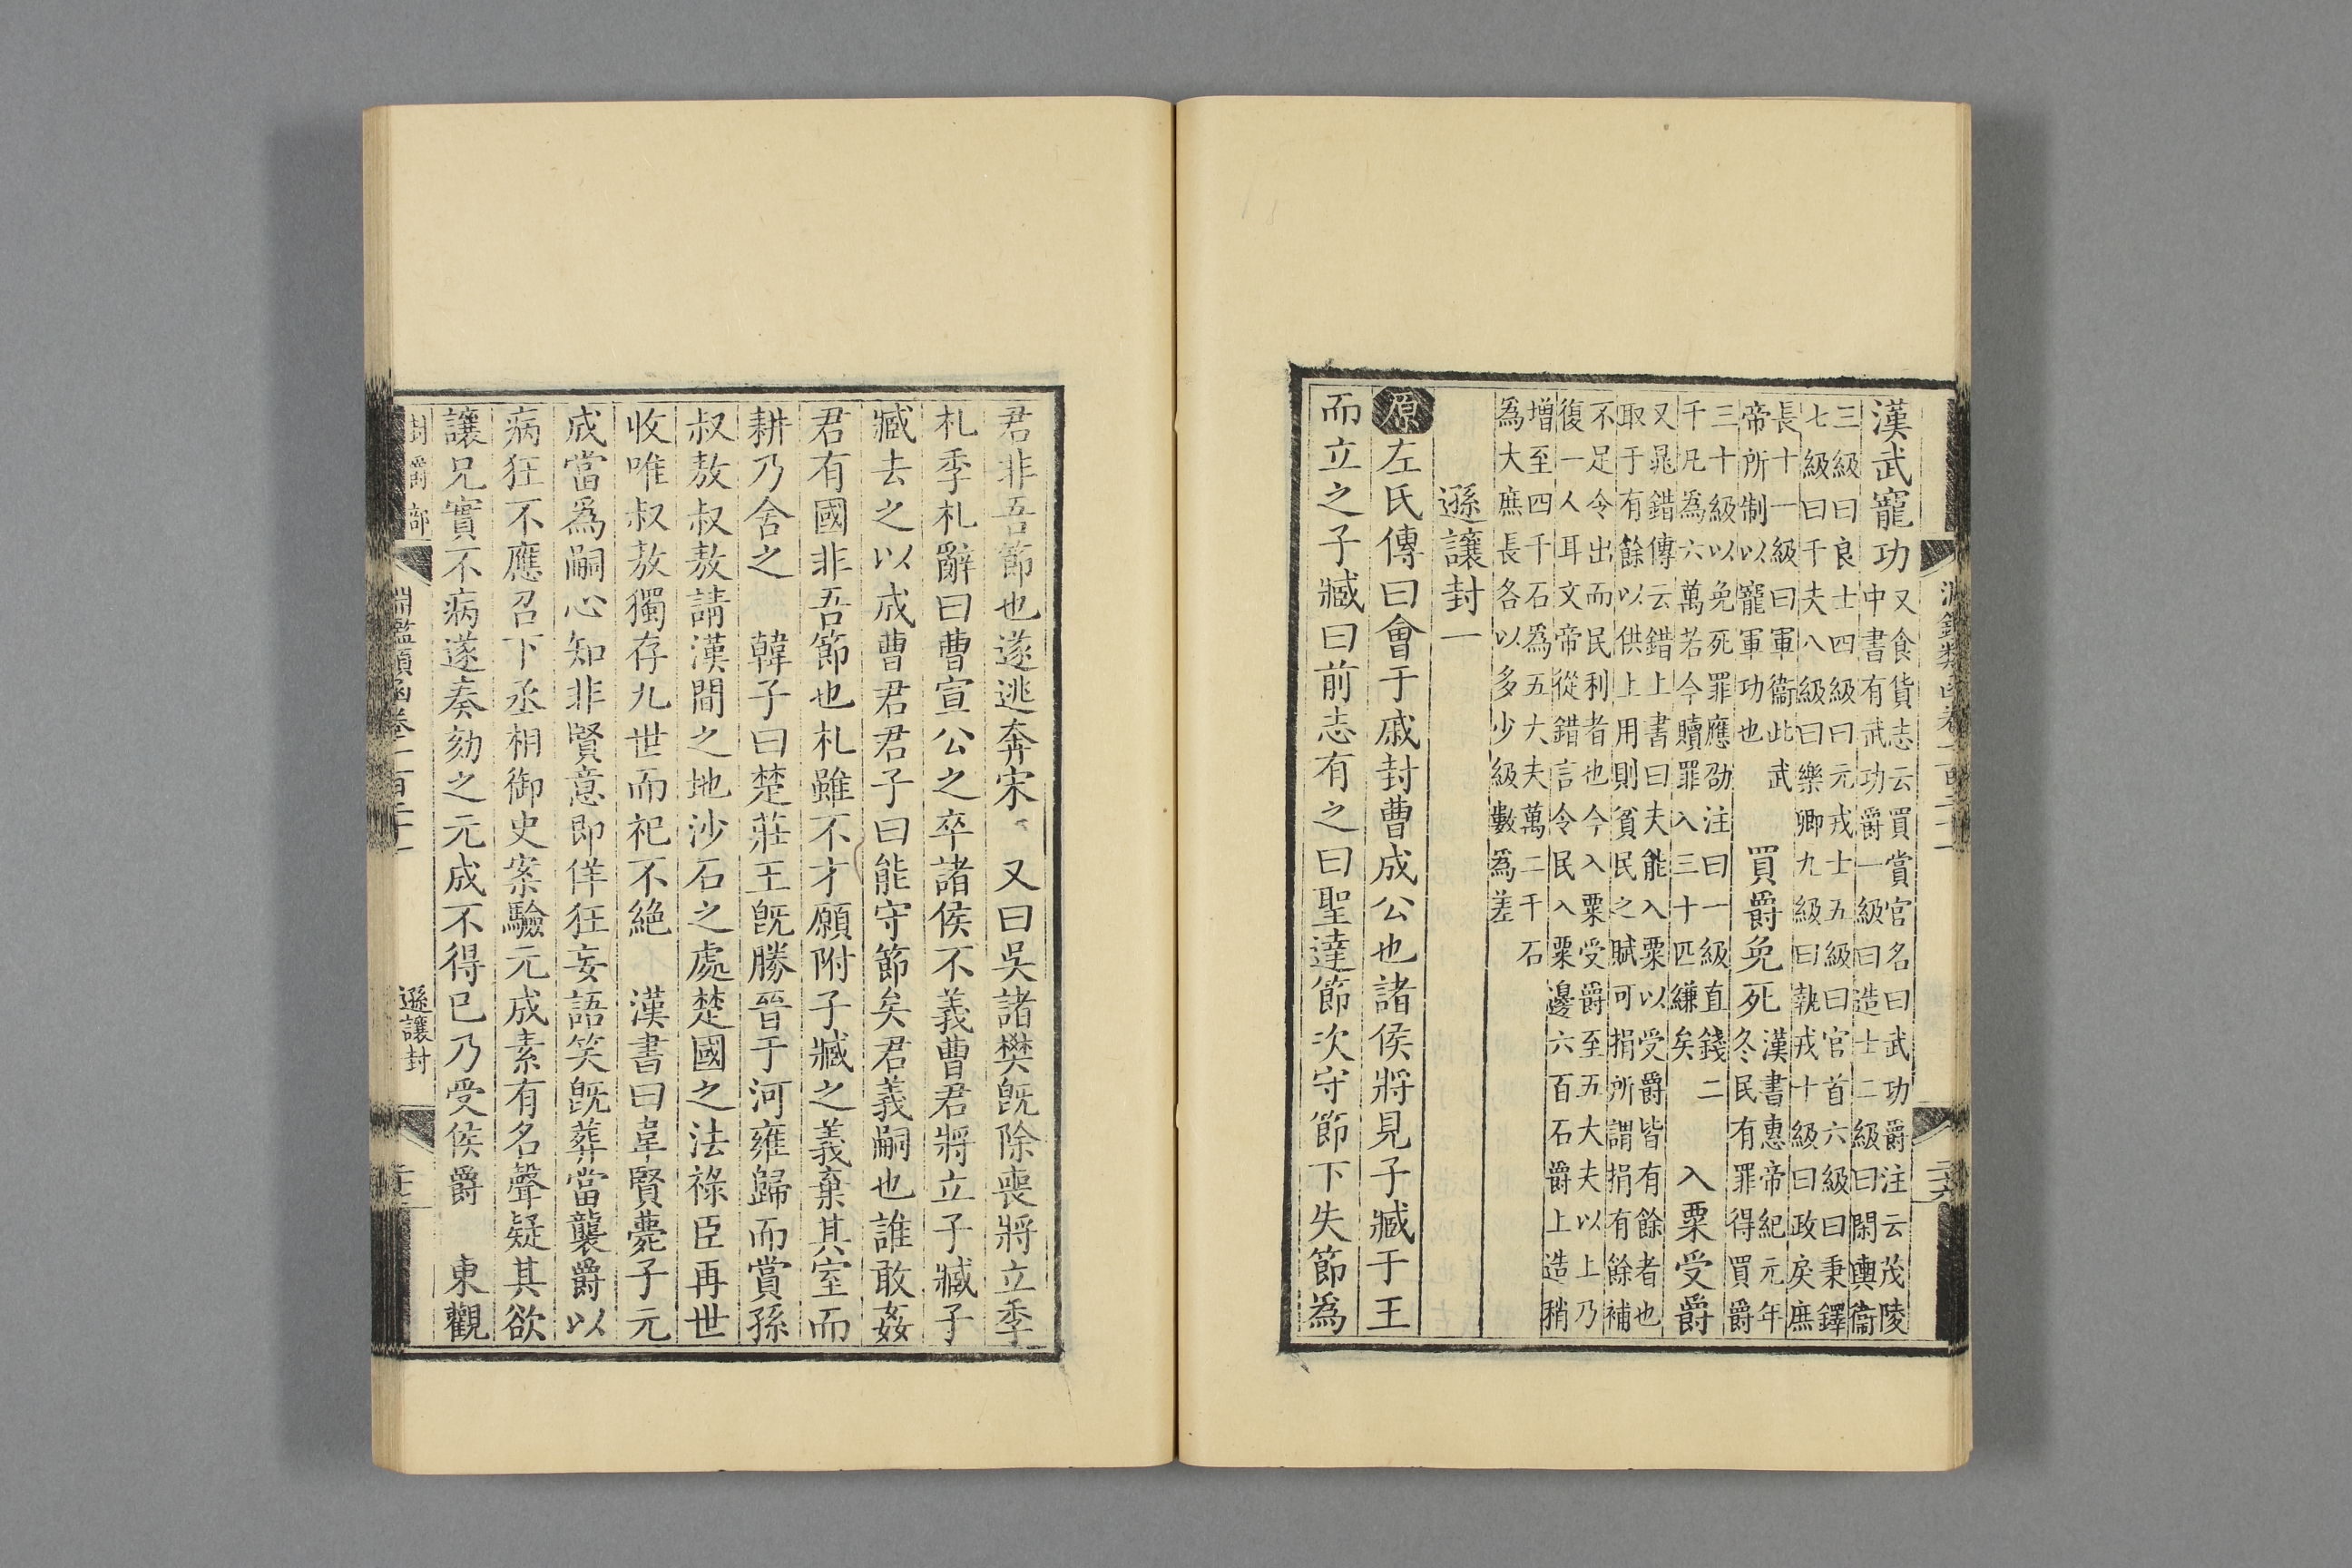 漢武寵功又食貨志云買賞官名曰武功爵注云茂陵中書有武功爵一級曰造士二級曰閑輿衞
三級曰良士四級曰元戎士五級曰官首六級曰秉鐸七級曰千夫八級曰樂卿九級曰執戎十級曰政戾庶
長十一級曰軍衞此武帝所制以寵軍功也買爵免死漢書惠帝紀元年冬民有罪得買爵
三十級以免死罪應劭注曰一級直錢二千凡為六萬若今贖罪入三十匹縑矣入粟受爵
又鼂錯傳云錯上書曰夫能入粟以受爵皆有餘者也取于有餘以供上用則貧民之賦可捐所謂捐有餘補
不足令出而民利者也今入粟受爵至五大夫以上乃復一人耳文帝從錯言令民入粟邊六百石爵上造稍
增至四千石為五大夫萬二千石為大庶長各以多少級數為差
遜讓封一
原左氏傳曰會于戚封曹成公也諸侯將見子臧于王
而立之子臧曰前志有之曰聖達節次守節下失節為
淵鑑類函卷一百二十一
二十六
君非吾節也遂逃奔宋又曰吳諸樊旣除喪將立季
札季札辭曰曹宣公之卒諸侯不義曹君將立子臧子
臧去之以成曹君君子曰能守節矣君義嗣也誰敢姦
君有國非吾節也札雖不才願附子臧之義棄其室而
耕乃舍之韓子曰楚莊王旣勝晉于河雍歸而賞孫
叔敖叔敖請漢間之地沙石之處楚國之法祿臣再世
收唯叔敖獨存九世而祀不絕漢書曰韋賢薨子元
成當為嗣心知非賢意即佯狂妄語笑旣葬當襲爵以
病狂不應召下丞相御史案驗元成素有名聲疑其欲
讓兄實不病遂奏劾之元成不得已乃受侯爵東觀
封爵部
淵鑑類函卷一百二十一
遜讓封